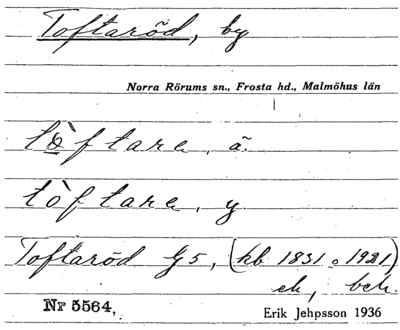 Toftaröd, by
Norra Rörums sn., Frosta hd., Malmöhus län
tòftare, ä.
tòftare, y
Toftaröd G5, (hb 1831 o 1921
ek, bek.
Nr 5564,
Erik Jehpsson 1936